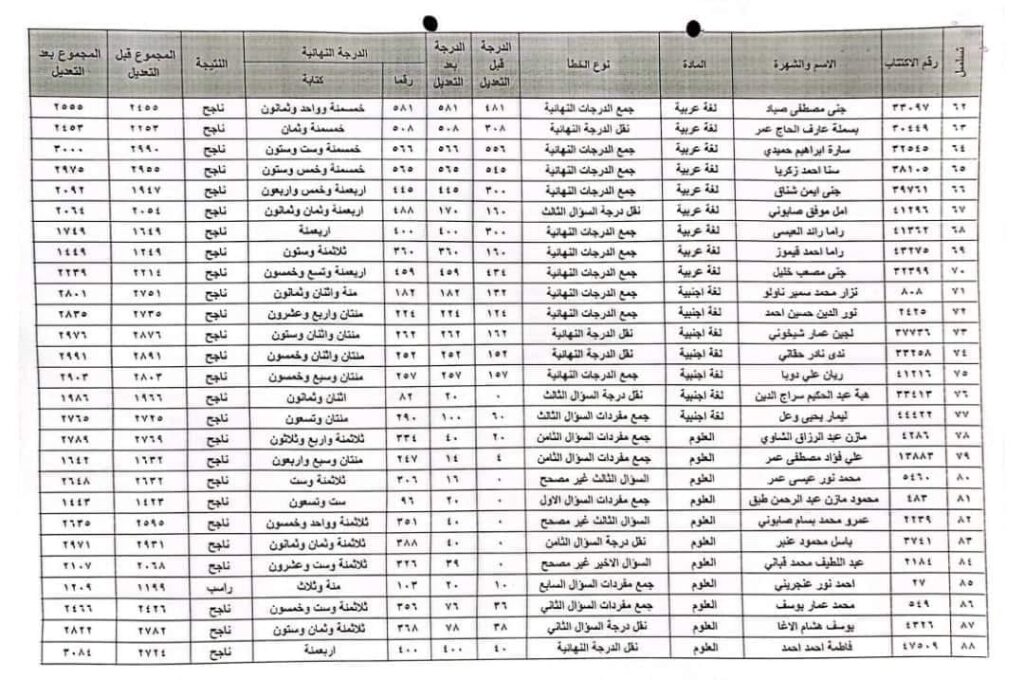 تسلسل | رقم الاكتتاب | الاسم والشهرة | المادة | نوع الخطأ | الدرجة قبل التعديل | الدرجة بعد التعديل | الدرجة النهائية رقما | الدرجة النهائية كتابة | النتيجة | المجموع قبل التعديل | المجموع بعد التعديل
٦٢ ٣٣٠٩٧ جنى مصطفى صياد لغة عربية جمع الدرجات النهائية ٤٨١ ٥٨١ ٥٨١ خمسمئة وواحد وثمانون ناجح ٢٤٥٥ ٢٥٥٥
٦٣ ٣٠٤٤٩ بسملة عارف الحاج عمر لغة عربية نقل الدرجة النهائية ٣٠٨ ٥٠٨ ٥٠٨ خمسمئة وثمان ناجح ٢٢٥٣ ٢٤٥٣
٦٤ ٣٢٥٤٥ سارة ابراهيم حميدي لغة عربية جمع الدرجات النهائية ٥٥٦ ٥٦٦ ٥٦٦ خمسمئة وست وستون ناجح ٢٩٩٠ ٣٠٠٠
٦٥ ٣٨١٠٥ سنا احمد زكريا لغة عربية جمع الدرجات النهائية ٥٤٥ ٥٦٥ ٥٦٥ خمسمئة وخمس وستون ناجح ٢٩٥٥ ٢٩٧٥
٦٦ ٣٩٧٦١ جنى ايمن شناق لغة عربية جمع الدرجات النهائية ٣٠٠ ٤٤٥ ٤٤٥ اربعمئة وخمس واربعون ناجح ١٩٤٧ ٢٠٩٢
٦٧ ٤١٢٩٦ امل موفق صابوني لغة عربية نقل درجة السؤال الثالث ١٦٠ ١٧٠ ٤٨٨ اربعمئة وثمان وثمانون ناجح ٢٠٥٤ ٢٠٦٤
٦٨ ٤١٣٦٢ راما رائد العيسى لغة عربية جمع الدرجات النهائية ٣٠٠ ٤٠٠ ٤٠٠ اربعمئة ناجح ١٦٤٩ ١٧٤٩
٦٩ ٤٣٢٧٥ راما احمد قيموز لغة عربية جمع الدرجات النهائية ١٦٠ ٣٦٠ ٣٦٠ ثلاثمئة وستون ناجح ١٢٤٩ ١٤٤٩
٧٠ ٣٢٣٩٩ جنى مصعب خليل لغة عربية جمع الدرجات النهائية ٤٣٤ ٤٥٩ ٤٥٩ اربعمئة وتسع وخمسون ناجح ٢٢١٤ ٢٢٣٩
٧١ ٨٠٨ نزار محمد سمير ناولو لغة اجنبية جمع الدرجات النهائية ١٣٢ ١٨٢ ١٨٢ مئة واثنان وثمانون ناجح ٢٧٥١ ٢٨٠١
٧٢ ٢٤٢٥ نور الدين حسين احمد لغة اجنبية جمع الدرجات النهائية ١٢٤ ٢٢٤ ٢٢٤ مئتان واربع وعشرون ناجح ٢٧٣٥ ٢٨٣٥
٧٣ ٣٧٧٣٦ لجين عمار شيخوني لغة اجنبية نقل الدرجة النهائية ١٦٢ ٢٦٢ ٢٦٢ مئتان واثنان وستون ناجح ٢٨٧٦ ٢٩٧٦
٧٤ ٣٣٢٥٨ ندى نادر حقاني لغة اجنبية نقل الدرجة النهائية ١٥٢ ٢٥٢ ٢٥٢ مئتان واثنان وخمسون ناجح ٢٨٩١ ٢٩٩١
٧٥ ٤١٢١٦ ريان علي دوبا لغة اجنبية جمع الدرجات النهائية ١٥٧ ٢٥٧ ٢٥٧ مئتان وسبع وخمسون ناجح ٢٨٠٣ ٢٩٠٣
٧٦ ٣٣٤١٣ هبة عبد الحكيم سراج الدين لغة اجنبية نقل درجة السؤال الثالث ٠ ٢٠ ٨٢ اثنان وثمانون ناجح ١٩٦٦ ١٩٨٦
٧٧ ٤٤٤٢٢ ليمار يحيى وعل لغة اجنبية جمع مفردات السؤال الثالث ٦٠ ١٠٠ ٢٩٠ مئتان وتسعون ناجح ٢٧٢٥ ٢٧٦٥
٧٨ ٤٢٨٦ مازن عبد الرزاق الشاوي العلوم جمع مفردات السؤال الثامن ٢٠ ٤٠ ٣٣٤ ثلاثمئة واربع وثلاثون ناجح ٢٧٦٩ ٢٧٨٩
٧٩ ١٣٨٨٣ علي فؤاد مصطفى عمر العلوم جمع مفردات السؤال الثامن ٤ ١٤ ٢٤٧ مئتان وسبع واربعون ناجح ١٦٣٢ ١٦٤٢
٨٠ ٥٤٦٠ محمد نور عيسى عمر العلوم السؤال الثالث غير مصحح ٠ ١٦ ٣٠٦ ثلاثمئة وست ناجح ٢٦٣٢ ٢٦٤٨
٨١ ٤٨٣ محمود مازن عبد الرحمن طبق العلوم جمع مفردات السؤال الاول ٠ ٢٠ ٩٦ ست وتسعون ناجح ١٤٢٣ ١٤٤٣
٨٢ ٢٢٣٩ عمرو محمد بسام صابوني العلوم السؤال الثالث غير مصحح ٠ ٤٠ ٣٥١ ثلاثمئة وواحد وخمسون ناجح ٢٥٩٥ ٢٦٣٥
٨٣ ٣٧٤١ باسل محمود عنبر العلوم نقل درجة السؤال الثامن ٠ ٤٠ ٣٨٨ ثلاثمئة وثمان وثمانون ناجح ٢٩٣١ ٢٩٧١
٨٤ ٢١٨٤ عبد اللطيف محمد قباني العلوم السؤال الاخير غير مصحح ٠ ٣٩ ٣٢٦ ثلاثمئة وست وعشرون ناجح ٢٠٦٨ ٢١٠٧
٨٥ ٢٧ احمد نور عنجريني العلوم جمع مفردات السؤال السابع ١٠ ٢٠ ١٠٣ مئة وثلاث راسب ١١٩٩ ١٢٠٩
٨٦ ٥٤٩ محمد عمار يوسف العلوم جمع مفردات السؤال الثاني ٣٦ ٧٦ ٣٥٦ ثلاثمئة وست وخمسون ناجح ٢٤٢٦ ٢٤٦٦
٨٧ ٤٣٢٦ يوسف هشام الاغا العلوم نقل درجة السؤال الثاني ٣٨ ٧٨ ٣٦٨ ثلاثمئة وثمان وستون ناجح ٢٧٨٢ ٢٨٢٢
٨٨ ٤٧٥٠٩ فاطمة احمد احمد العلوم نقل الدرجة النهائية ٤٠ ٤٠٠ ٤٠٠ اربعمئة ناجح ٢٧٢٤ ٣٠٨٤